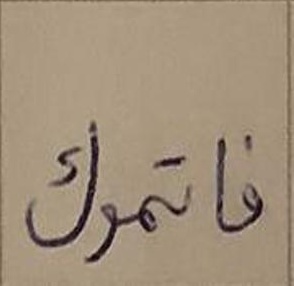 فاتموك